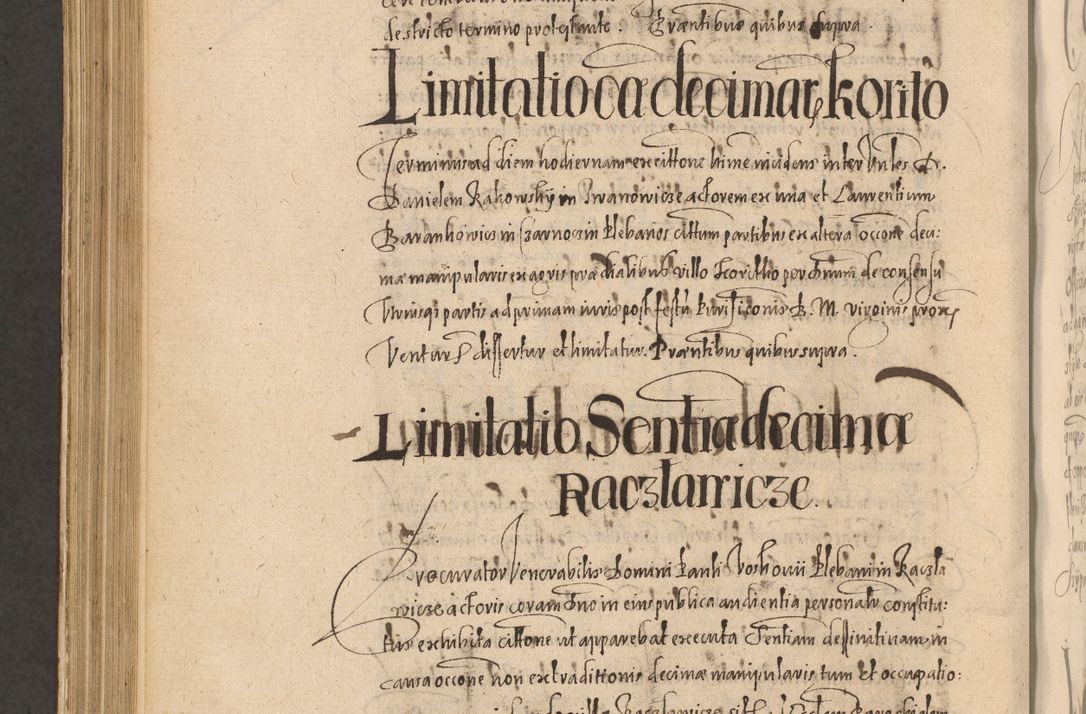 destricto termino protestante. Præntibus quibus supra.
Limitatio ca decimar korito
Terminus ad diem hodiernam ex cittone hinc incidens inter Vnles D.
Danielem Rakowskÿ in Iwanowicze actorem ex una et Laurentium
Barankowics in Czarnoczin Plebanos cittum partibus ex altera occone deci:
mæ manipularis ex agris prædialibus villo Koritho per Dnum de consensu
Vtriusq; partis ad primam iuris post festũ Purificconis B. M. virginis prox
Ventur differtur et limitatur. Præntibus quibus supra.
Limitatio Sentia decima
Raczlawicze.
Procurator Venerabilis Domini Pauli Plebani in Raczla
wicze actoris coram Dno in eius publica audientia personalr constitu:
tus exhibita cittone ut apparebat executa Sentiam deffinitivam in
causa occone non extraditionis decimæ manipularis tum et occupatio:
villa Raczlawicze